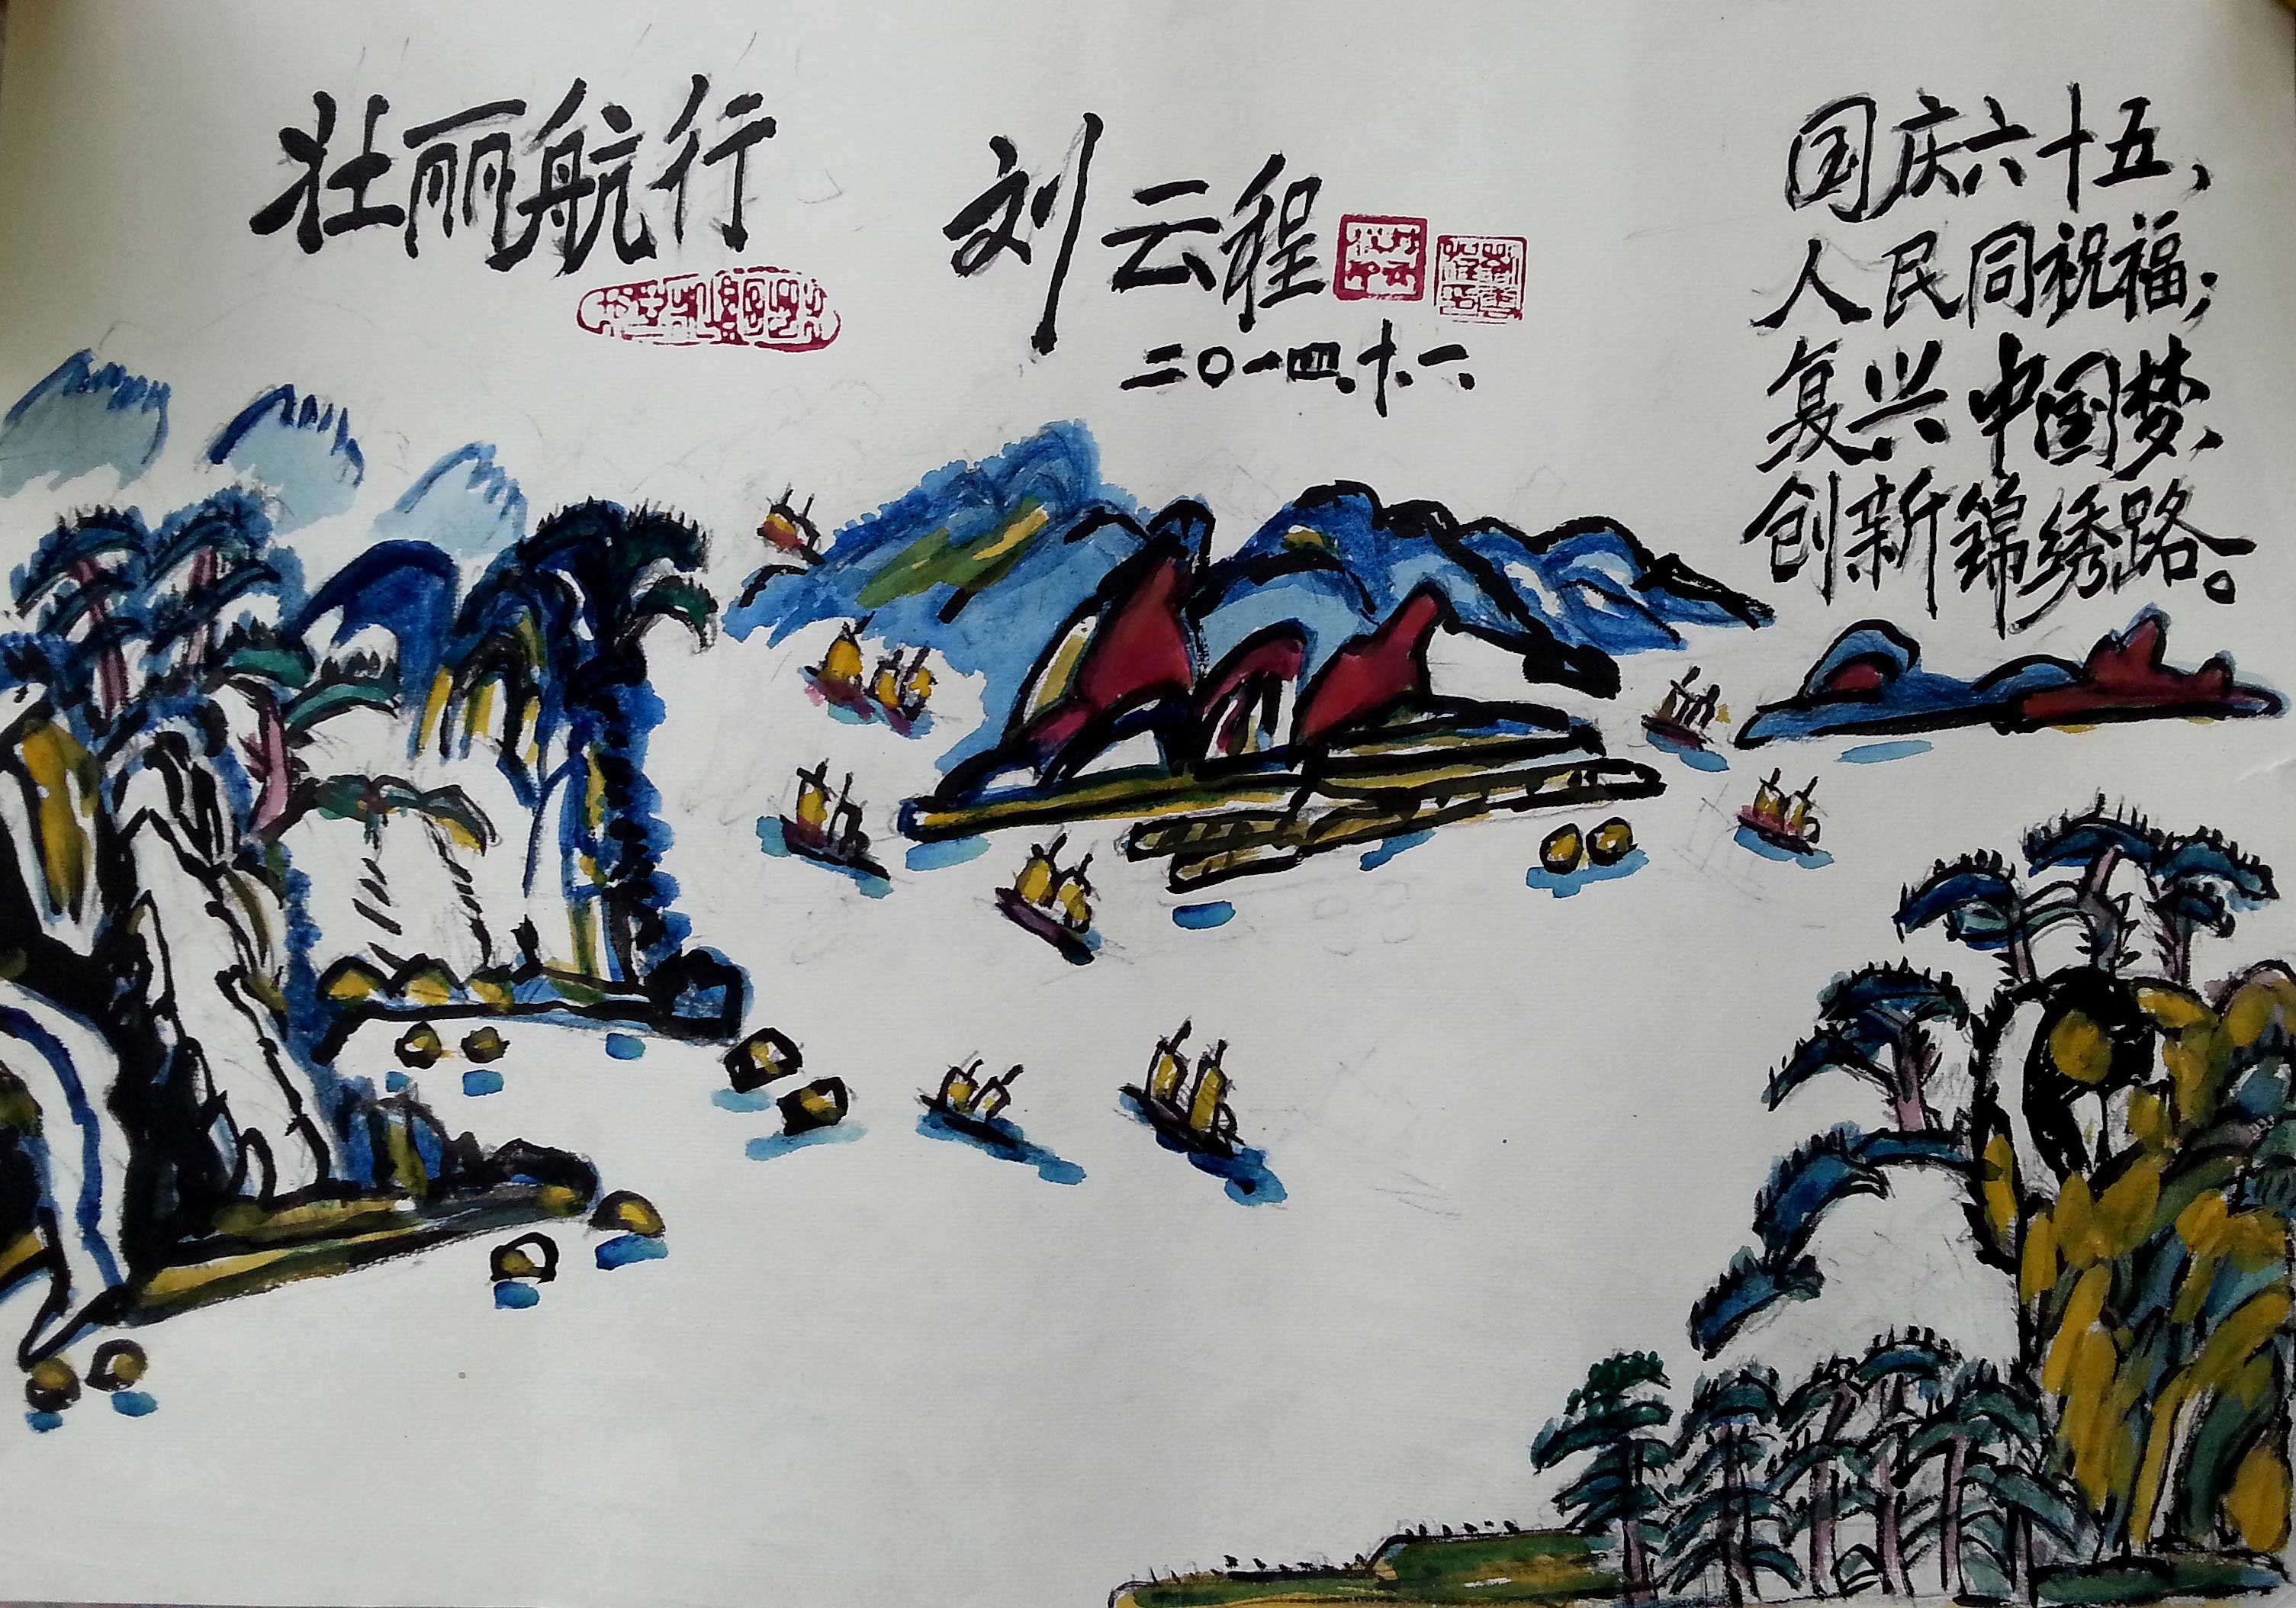 壮丽航行
刘云程
二〇一四.十.一.
国庆六十五，
人民同祝福；
复兴中国梦，
创新锦绣路。